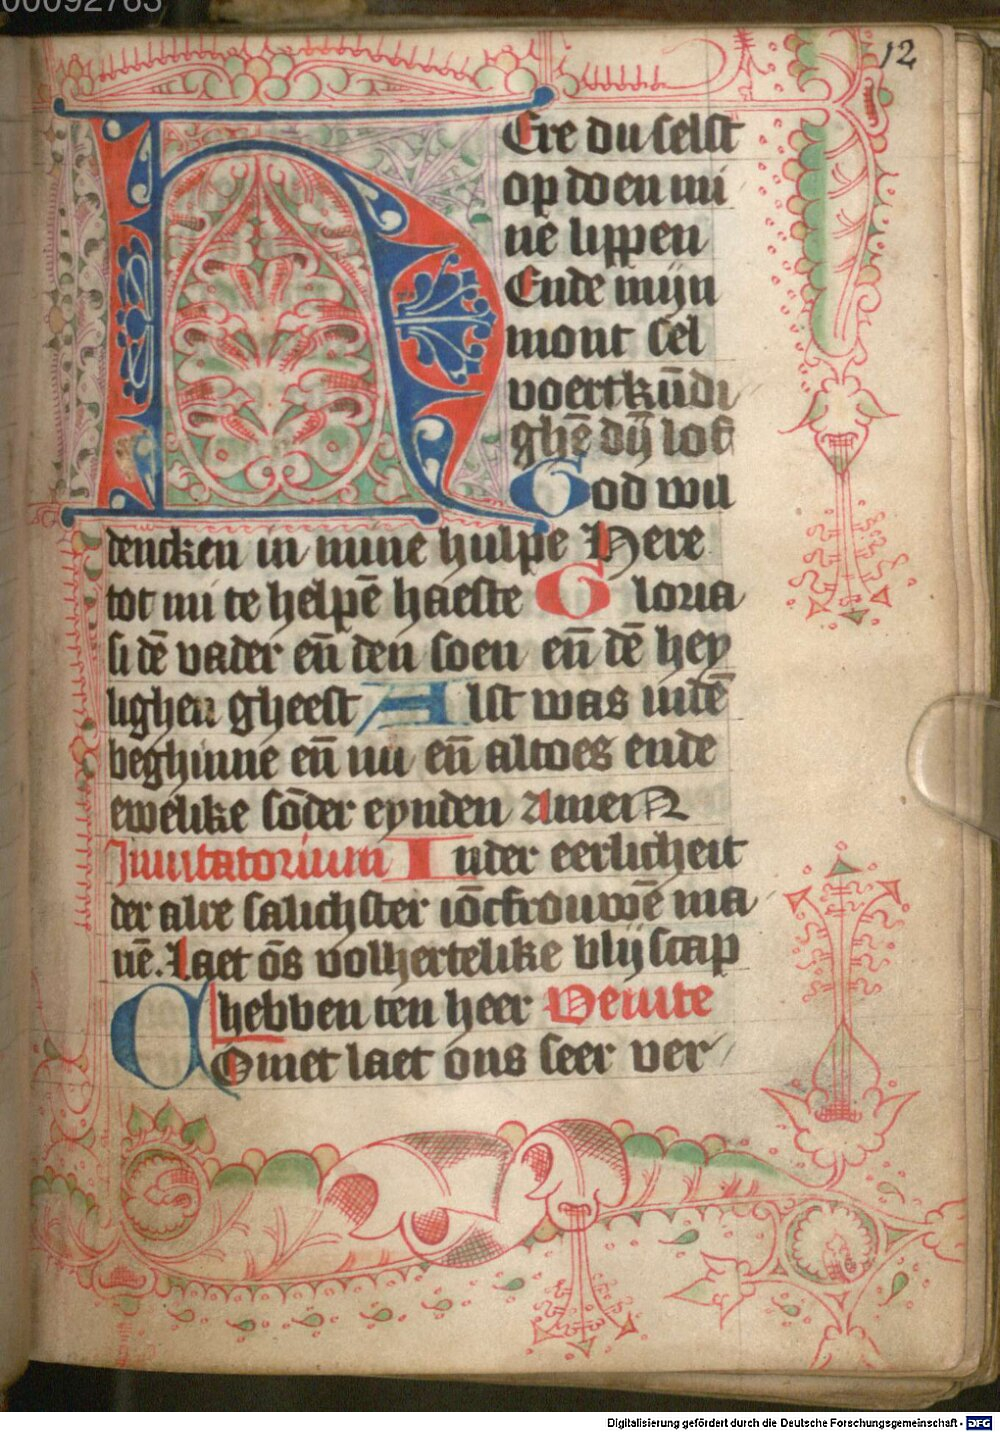 00092763
12
HEre du selst
op doen mi
nē lippen
Ende mijn
mont sel
voertkūdi
ghē dȳ lof
God wil
dencken in mine hulpe Here
tot mi te helpē haeste Gloria
si dē vader eñ den soen eñ dē hey
lighen gheest Alst was indē
beghinne eñ nu eñ altoes ende
ewelike sōder eynden Amen
Inuitatorium Inder eerlicheit
der alre salichster iōcfrouwē ma
riē. Laet ōs volhertelike blijscap
hebben ten heer Venite
Omet laet ons seer ver
Digitalisierung gefördert durch die Deutsche Forschungsgemeinschaft - DFG